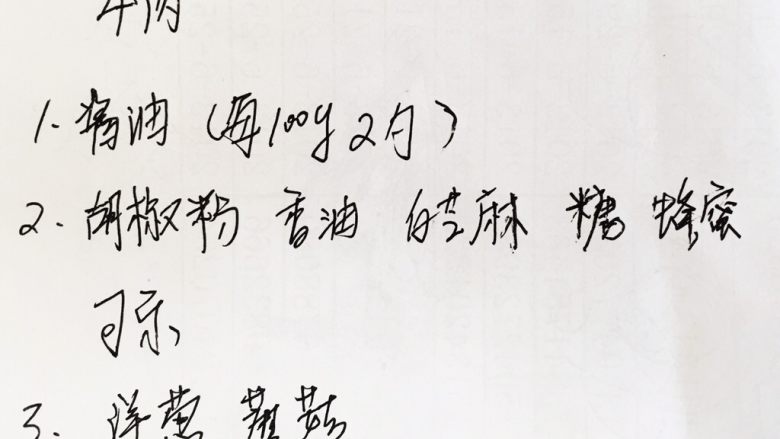 牛肉
1. 酱油 (每100g 2勺)
2. 胡椒粉 香油 白芝麻 糖 蜂蜜
可乐
3. 洋葱 蘑菇